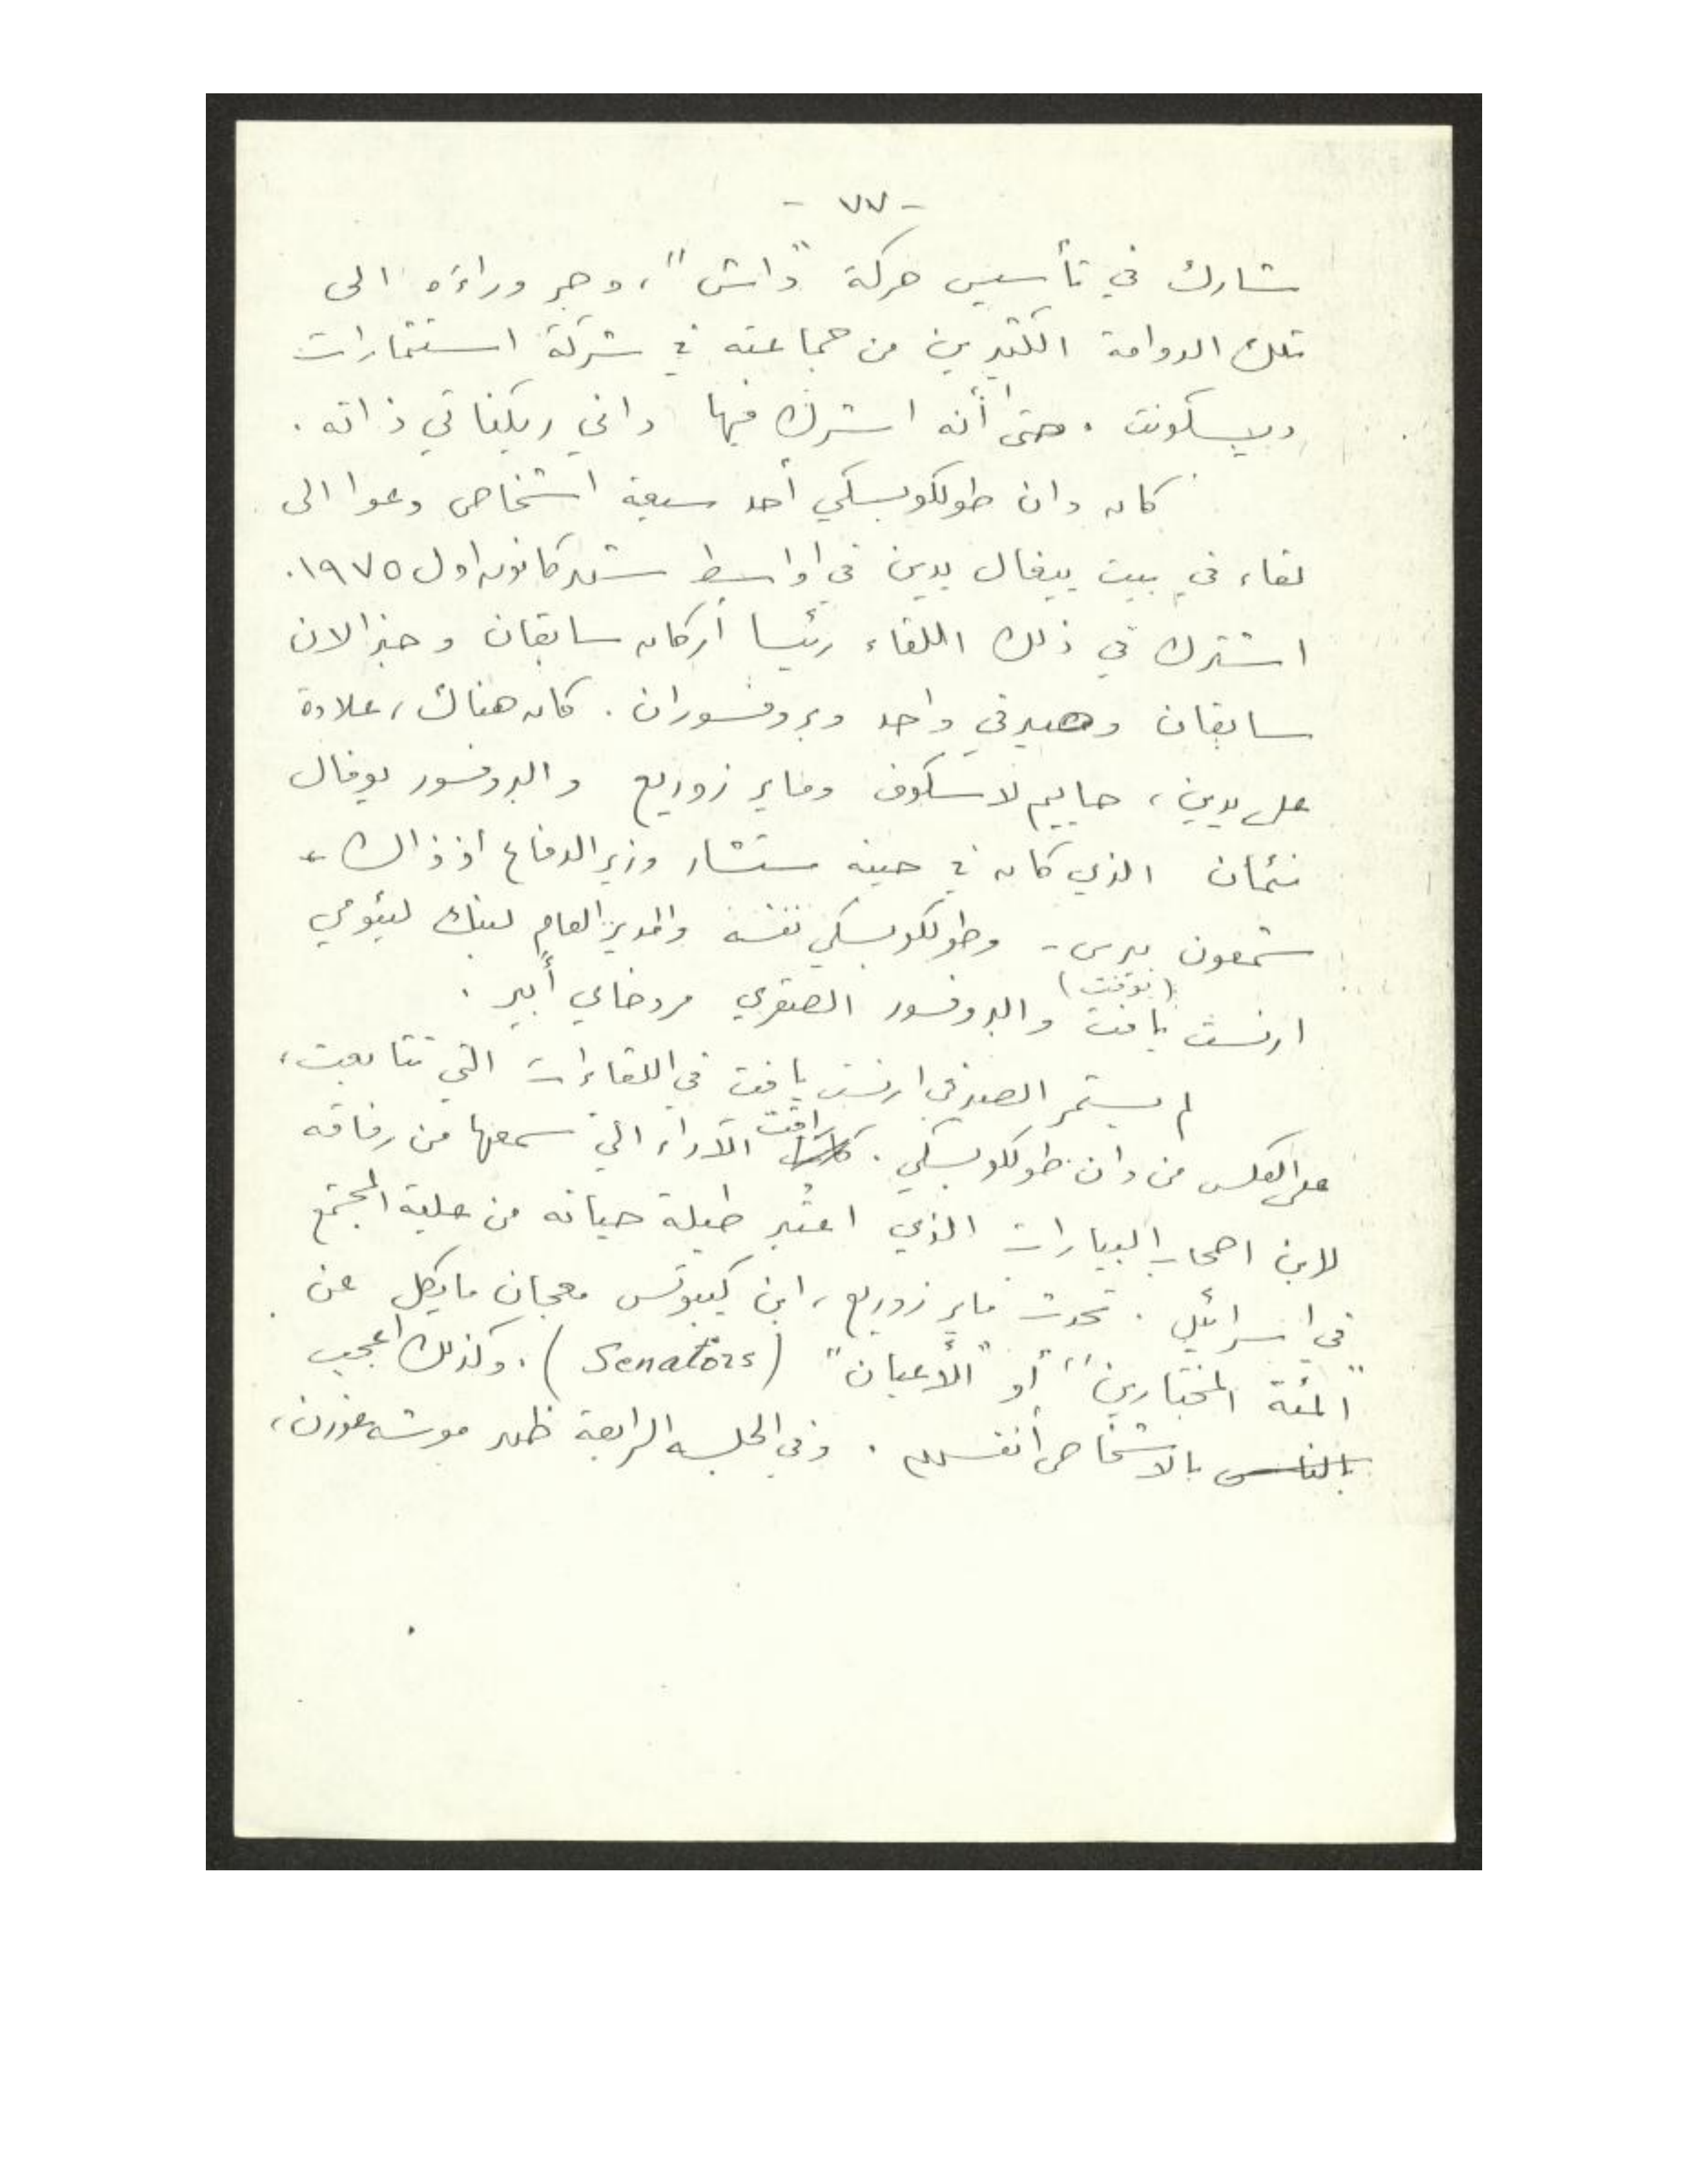 - ٧٧ -
شارك في تأسيس حركة "داش"، وجر وراءه الى
تلك الدوامة الكثيرين من جماعته في شركة استثمارات
ديسكونت. حتى أنه اشترك فيها داني ريكناتي ذاته.
كان دان طولكوبسكي أحد سبعة اشخاص دعوا الى
لقاء في بيت ييغال يدين في اواسط شهر كانون اول ١٩٧٥.
اشترك في ذلك اللقاء رئيسا أركان سابقان وجنرالان
سابقان وصيرفي واحد وبروفسوران. كان هناك، علاوة
على يدين، حاييم لاسكوف وماير زوريع والبروفسور يوفال
نئمان الذي كان في حينه مستشار وزير الدفاع اذ ذاك -
شمعون بيرس - وطولكوبسكي نفسه والمدير العام لبنك ليئومي
(يوفت)
ارنست يافت والبروفسور العبقري مردخاي أبير.
لم يستمر الصيرفي ارنست يافت في اللقاءات التي تتابعت،
على العكس من دان طولكوبسكي. راقت الآراء التي سمعها من رفاقه
لابن اصحاب البيارات الذي اعتبر طيلة حياته من علية المجتمع
في اسرائيل. تحدث ماير زوريع، ابن كيبوتس معجان مايكل عن
"المئة المختارين" أو "الأعيان" (Senators). وكذلك اعجب
بالناس بالاشخاص أنفسهم. وفي الجلسة الرابعة ظهر موشه عوزن،